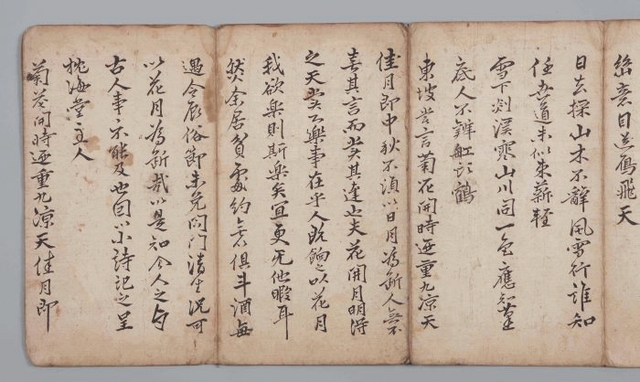 意目送鴈飛天
日去採山木不辭風雪行誰知
任吾道未似束薪輕
雪下剡溪寒山川同一色應知篷
底人不辨舡頭鶴
東坡嘗言菊花開時迺重九凉天
佳月即中秋不須以日月為斷人無
喜其言而其達也夫花開月明得
之天樂事在乎人既餉之以花月
我欲樂則斯樂矣宜更无他暇耳
然余居貧處約無俱斗酒每
遇令辰俗節未免閉門清坐況可
以花月為斷哉以是知今人之与
古人事不能及也因以小詩記之呈
枕海堂主人
菊花開時迺重九凉天佳月即